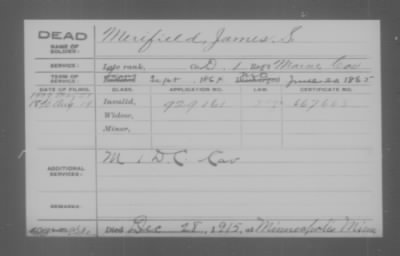 DEAD
NAME OF SOLDIER:
Merifield, James S.
SERVICE:
Late rank, Co D, 1 Reg't Maine Cav
TERM OF SERVICE:
Enlisted Sept 1864 Discharged June 20 1865
DATE OF FILING: CLASS. APPLICATION NO. LAW. CERTIFICATE NO.
1890 Aug 19 Invalid, 929161 667603
Widow,
Minor,
ADDITIONAL SERVICES:
M 1 D.C. Cav
REMARKS:
Died Dec 28, 1915, at Minneapolis Minn